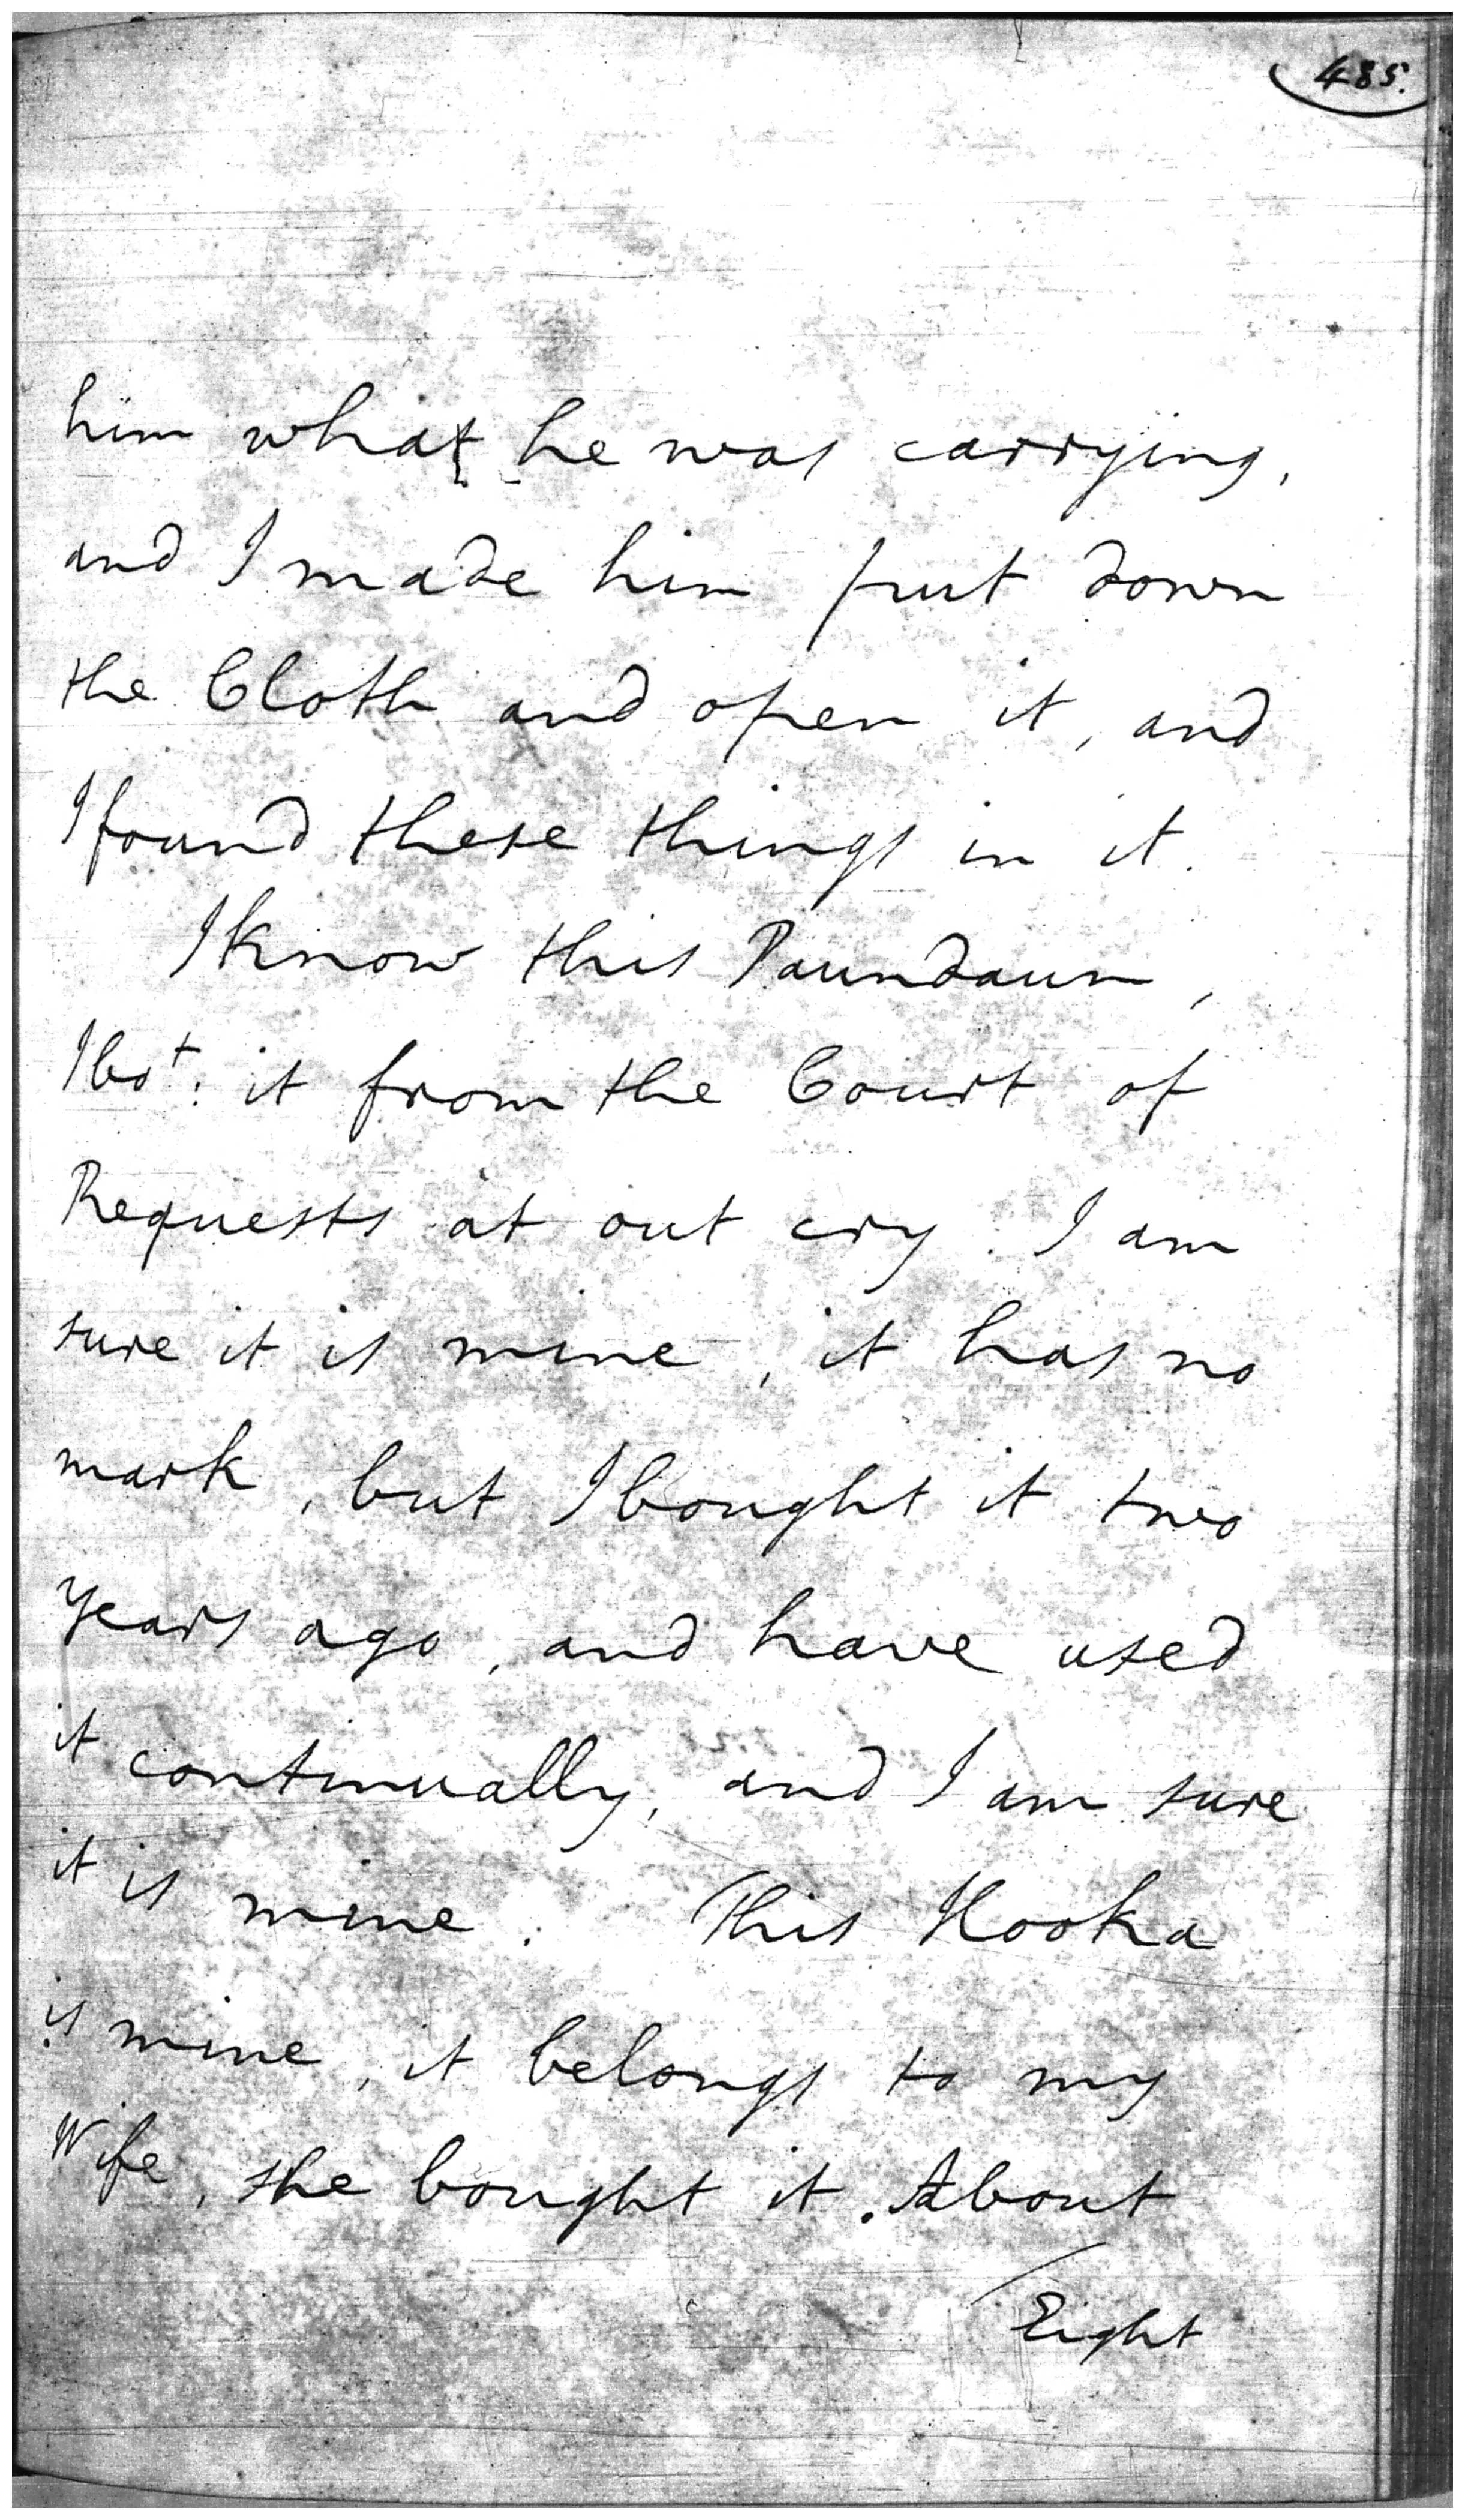 485.
him what he was carrying,
and I made him put down
the Cloth and open it, and
I found these things in it.
I know this Paundaun,
I bot. it from the Court of
Requests at out cry. I am
sure it is mine, it has no
mark, but I bought it two
Years ago, and have used
it continually, and I am sure
it is mine. This Hooka
is mine, it belongs to my
Wife, she bought it. About
Eight